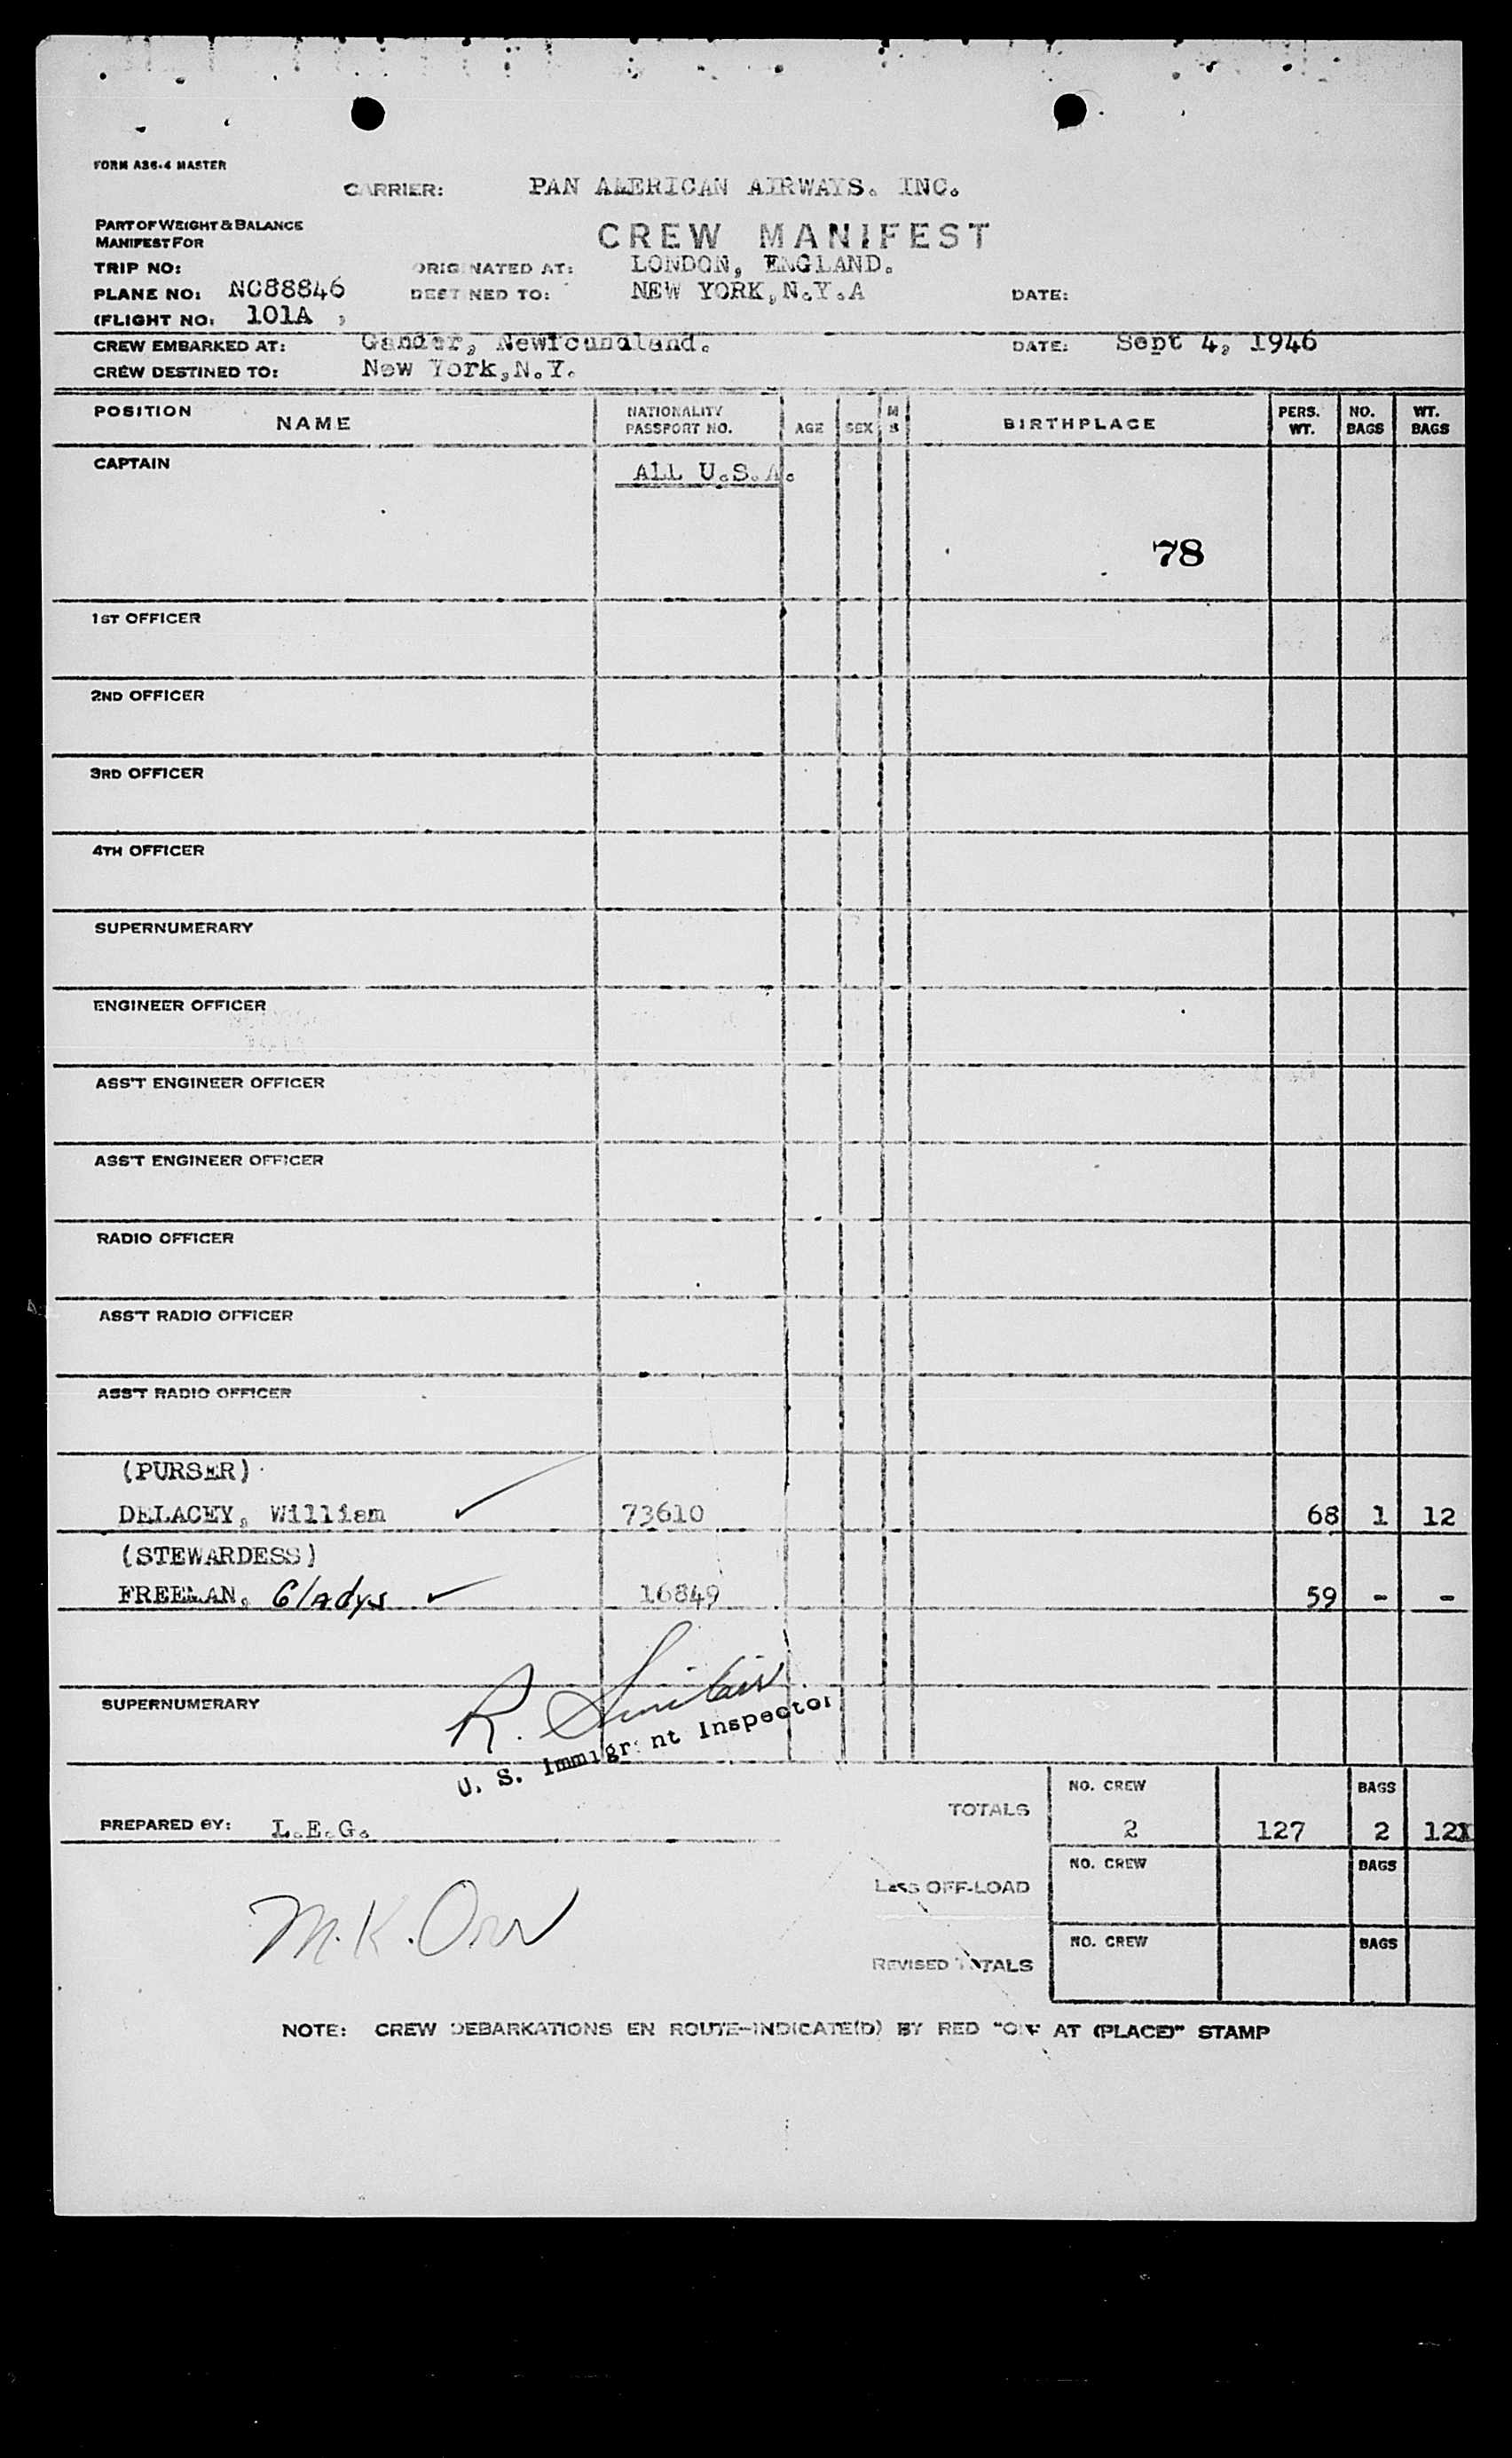 FORM A36-4 MASTER
CARRIER: PAN AMERICAN AIRWAYS. INC.
PART OF WEIGHT & BALANCE
MANIFEST FOR
CREW MANIFEST
TRIP NO: ORIGINATED AT: LONDON, ENGLAND.
PLANE NO: NC88846 DESTINED TO: NEW YORK,N.Y.A DATE:
(FLIGHT NO: 101A ,
CREW EMBARKED AT: Gander, Newfoundland. DATE: Sept 4, 1946
CREW DESTINED TO: New York,N.Y.
POSITION NAME NATIONALITY PASSPORT NO. AGE SEX M S BIRTHPLACE PERS. WT. NO. BAGS WT. BAGS
CAPTAIN ALL U.S.A.
78
1ST OFFICER
2ND OFFICER
3RD OFFICER
4TH OFFICER
SUPERNUMERARY
ENGINEER OFFICER
ASS'T ENGINEER OFFICER
ASS'T ENGINEER OFFICER
RADIO OFFICER
ASS'T RADIO OFFICER
ASS'T RADIO OFFICER
(PURSER)
DELACEY, William 73610 68 1 12
(STEWARDESS)
FREEMAN, Gladys 16849 59 - -
SUPERNUMERARY
R. Sinclair
U. S. Immigrant Inspector
NO. CREW BAGS
TOTALS 2 127 2 12
PREPARED BY: L.E.G.
NO. CREW BAGS
LESS OFF-LOAD
M.K. Orr
NO. CREW BAGS
REVISED TOTALS
NOTE: CREW DEBARKATIONS EN ROUTE-INDICATE(D) BY RED "OFF AT (PLACE)" STAMP